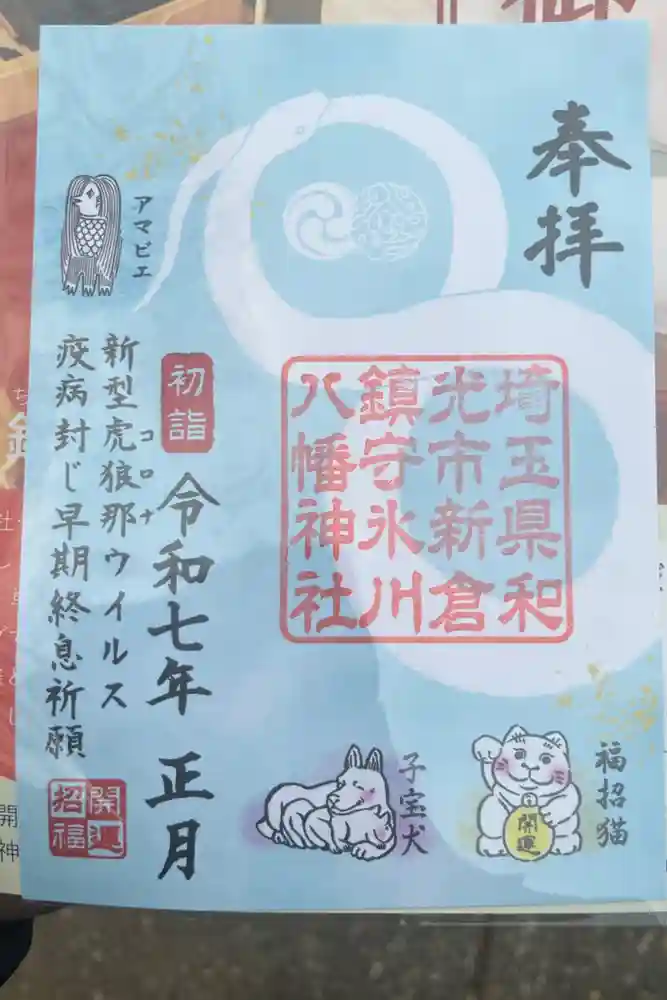 奉拝
埼玉県和
光市新倉
鎮守氷川
八幡神社
初詣
令和七年 正月
アマビエ
新型虎狼那ウイルス
コロナ
疫病封じ早期終息祈願
開運
招福
子宝犬
福招猫
開運